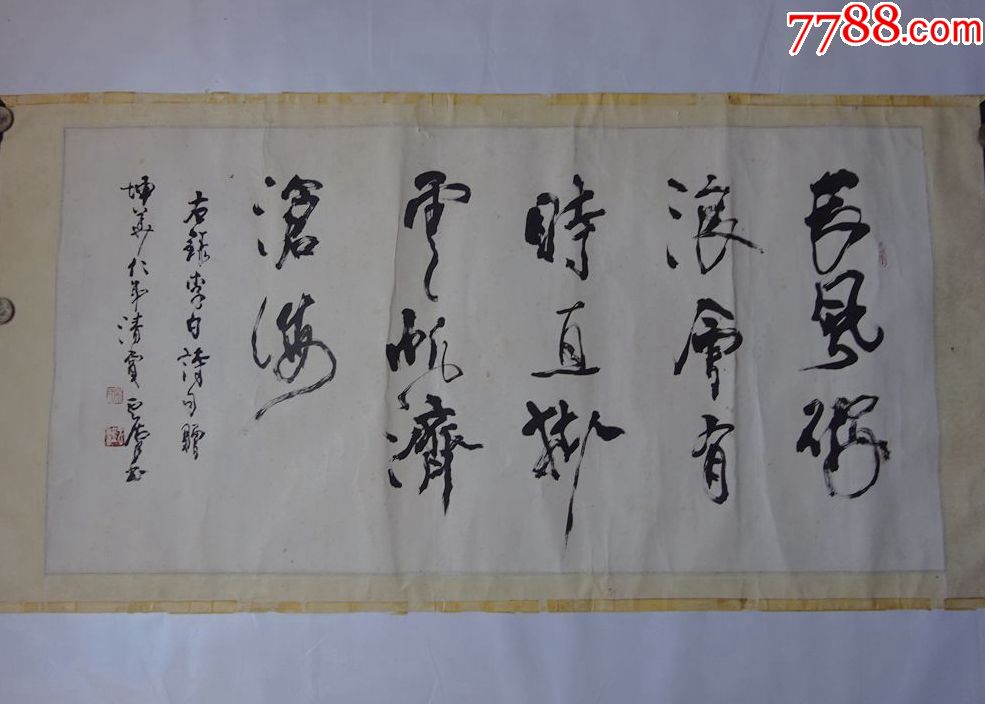 长風破
浪會有
時直掛
雲帆濟
滄海
右録李白詩句贈
坤英仁弟清賞
7788.com